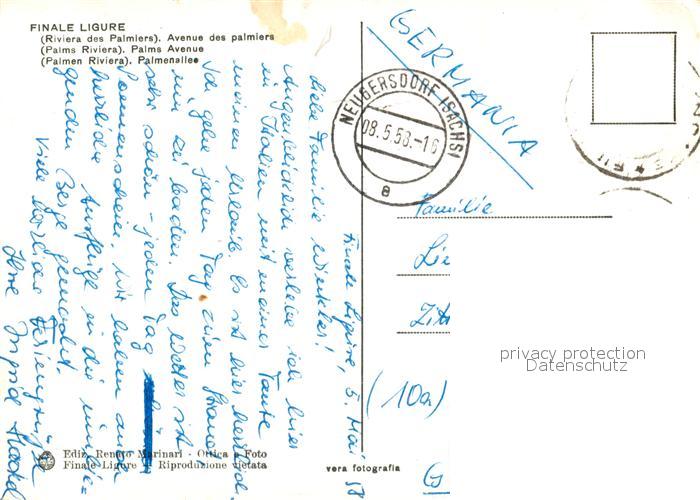 FINALE LIGURE
(Riviera des Palmiers). Avenue des palmiers
(Palms Riviera). Palms Avenue
(Palmen Riviera). Palmenallee
GERMANIA
NEUGERSDORF (SACHS)
08.5.58.-16
a
Familie
Zitt
(10a)
privacy protection
Datenschutz
Finale Ligure, 5. Mai 58
Liebe Familie
Augenblicklich verlebe ich hier
in Italien mit meiner Tante
meinen Urlaub. Es ist hier herrlich.
Wir gehen jeden Tag zum Strand,
um zu baden. Das Wetter ist
sehr schön - jeden Tag
Sonnenschein. Wir haben auch
herrliche Ausflüge in die umlie=
genden Berge gemacht.
Viele herzliche Feriengrüße
Ihre Ingrid
Ediz. Renato Marinari - Ottica e Foto
Finale Ligure - Riproduzione vietata
vera fotografia